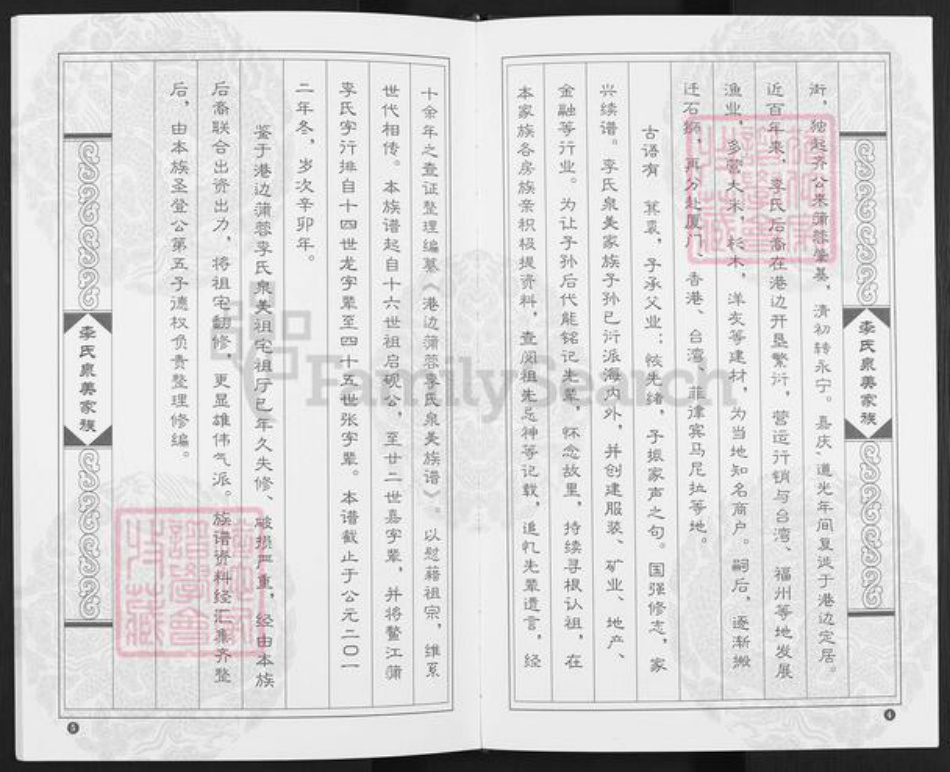 李氏泉美家族
街，独起齐公来蒲蓉肇基，清初转永宁。嘉庆、道光年间复迁于港边定居。
近百年来，李氏后裔在港边开垦繁衍，营运行销与台湾、福州等地发展
渔业，多营大米，杉木，洋灰等建材，为当地知名商户。嗣后，逐渐搬
迁石狮，再分赴厦门、香港、台湾、菲律宾马尼拉等地。
古语有 箕裘，子承父业；候先绪，子振家声之句。国强修志，家
兴续谱。李氏泉美家族子孙已衍派海内外，并创建服装、矿业、地产、
金融等行业。为让子孙后代能铭记先辈，怀念故里，持续寻根认祖，在
本家族各房族亲积极提资料，查阅祖先忌神等记载，追忆先辈遗言，经
4
十余年之查证整理编纂《港边蒲蓉李氏泉美族谱》。以慰藉祖宗，维系
世代相传。本族谱起自十六世祖启砚公，至廿二世嘉字辈，并将鳌江蒲
李氏字行排自十四世龙字辈至四十五世张字辈。本谱截止于公元二〇一
二年冬，岁次辛卯年。
鉴于港边蒲蓉李氏泉美祖宅祖厅已年久失修、破损严重，经由本族
后裔联合出资出力，将祖宅翻修，更显雄伟气派。族谱资料经汇集齐整
后，由本族圣登公第五子德权负责整理修编。
李氏泉美家族
5
FamilySearch